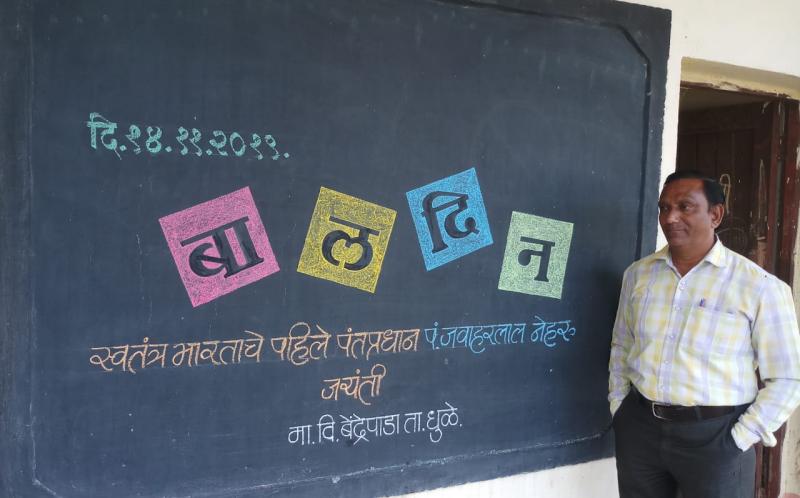 दि.१४.११.२०१९.
बालदिन
स्वतंत्र भारताचे पहिले पंतप्रधान पं.जवाहरलाल नेहरू
जयंती
मा.वि.बेंद्रेपाडा ता.धुळे.